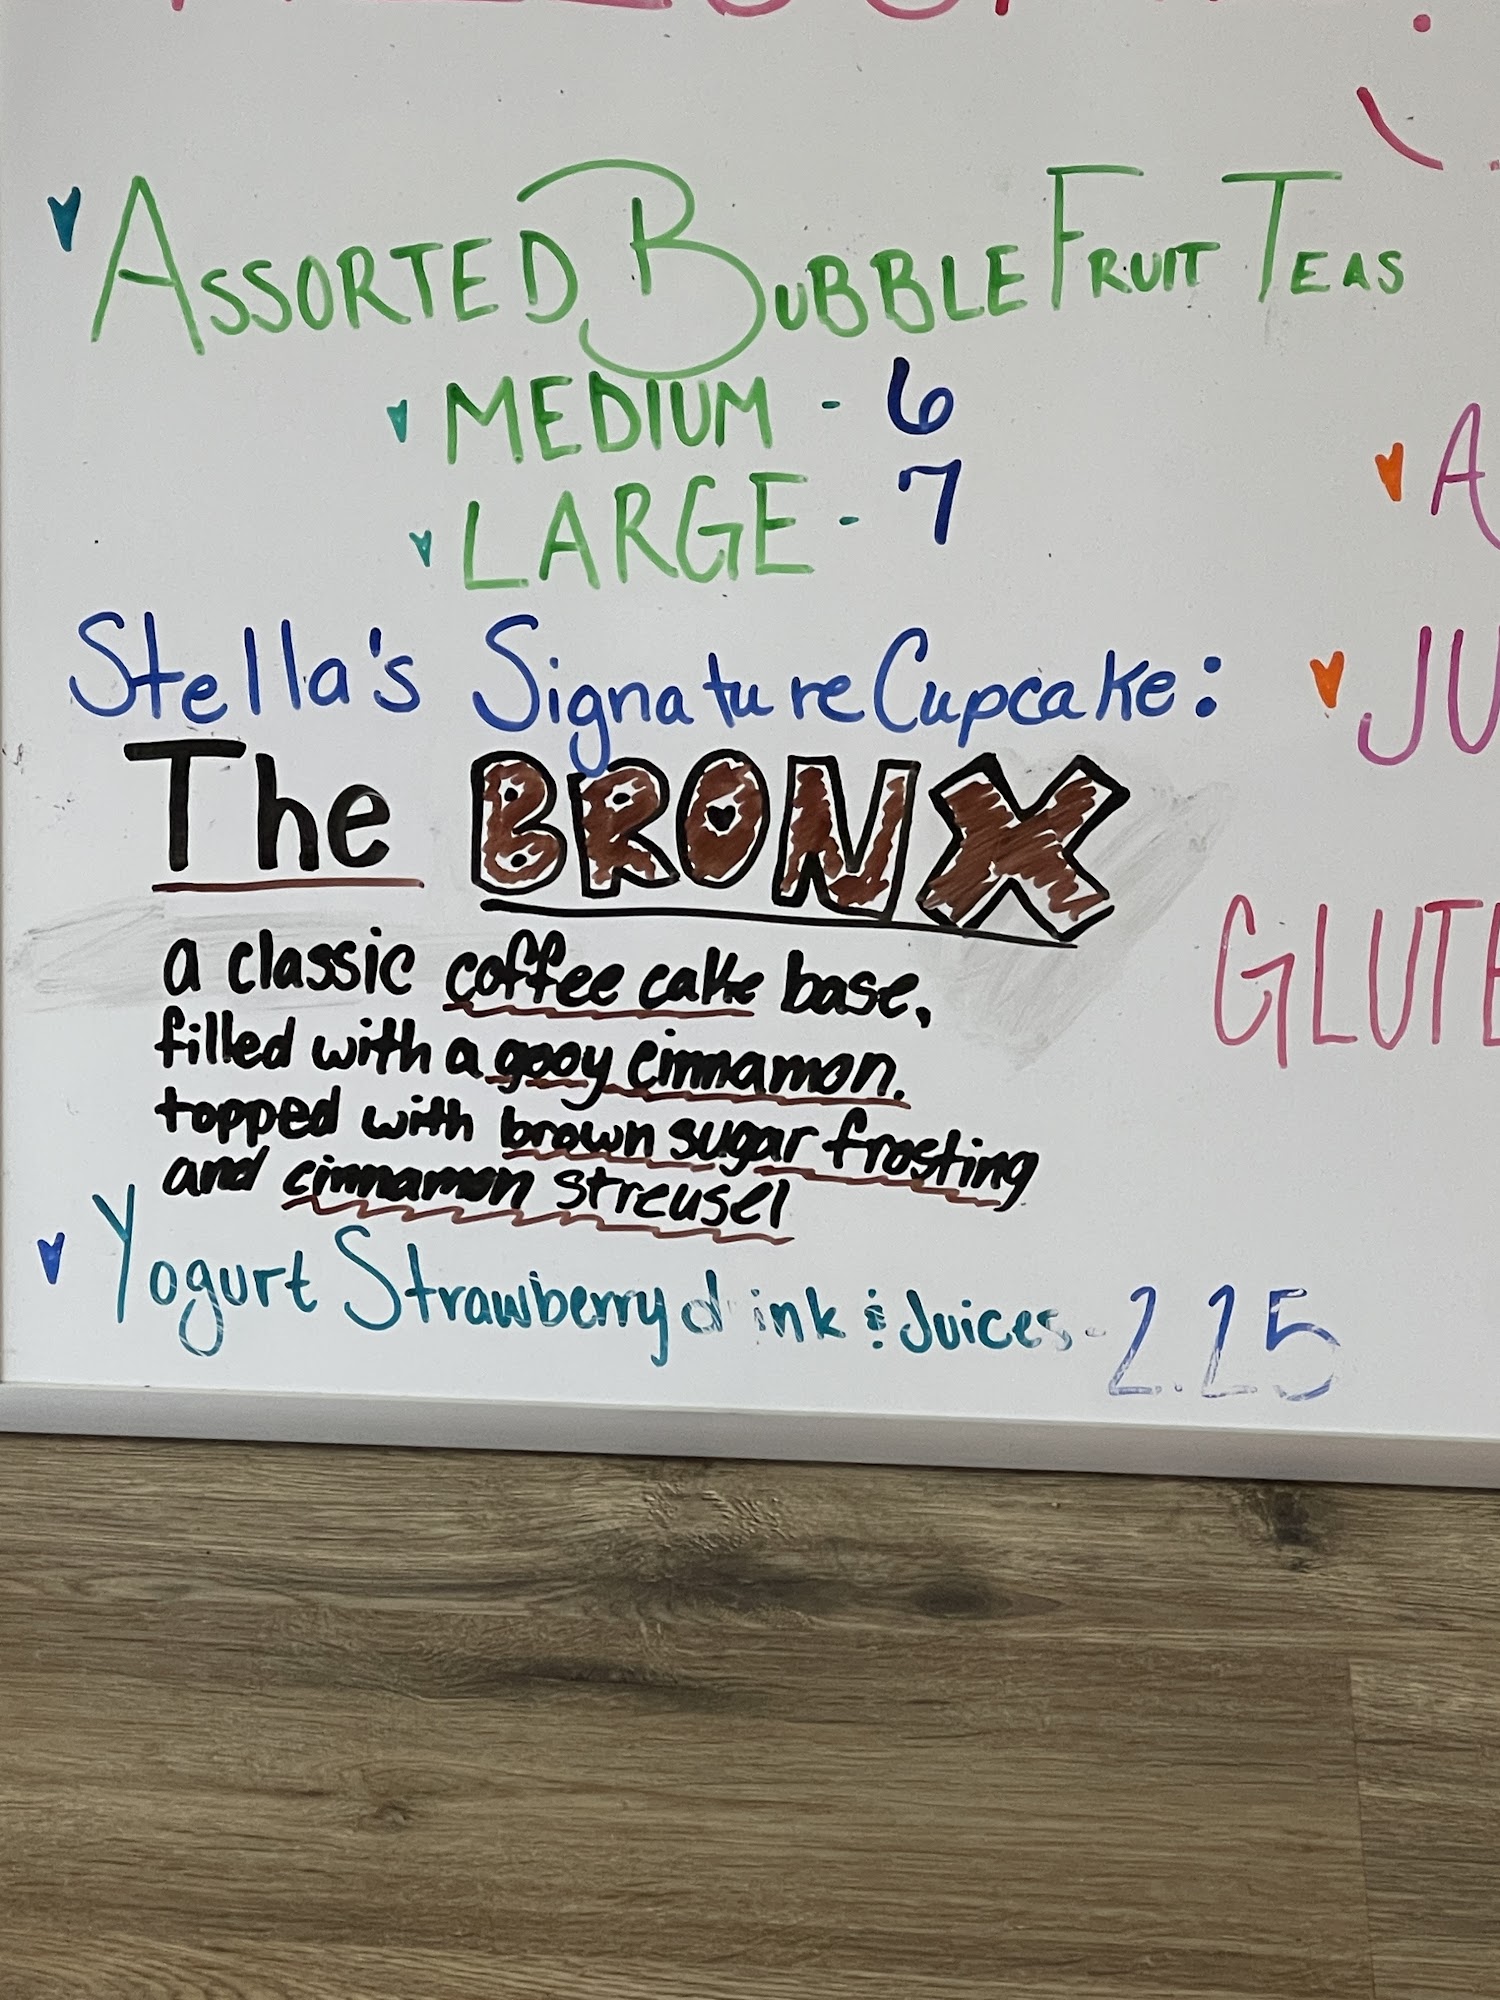 ASSORTED BUBBLE FRUIT TEAS
MEDIUM - 6
LARGE - 7
Stella's Signature Cupcake:
The BRONX
a classic coffee cake base,
filled with a gooy cinnamon.
topped with brown sugar frosting
and cinnamon streusel
Yogurt Strawberry drink & Juices - 2.25
A
JU
GLUTE